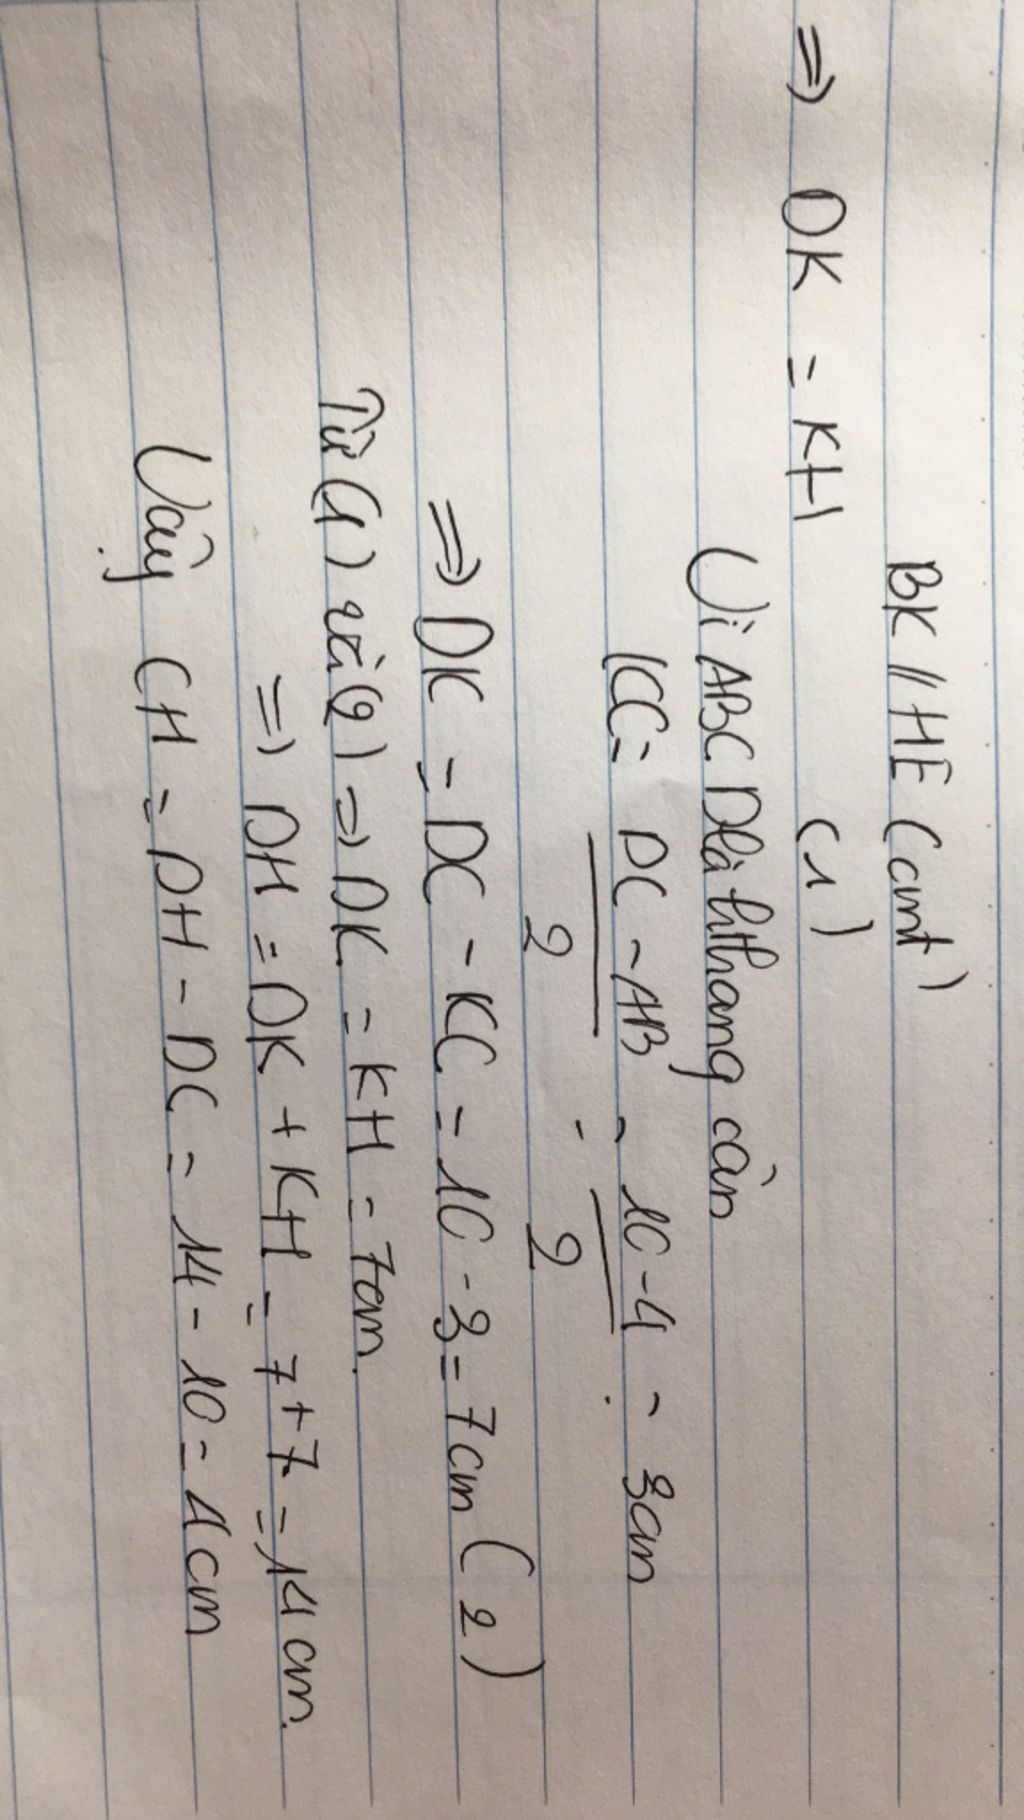 BK // HE (cmt)
⇒ DK = KH (1)
Vì ABCD là hthang cân
KC = DC - AB / 2 = 10 - 4 / 2 = 3cm
⇒ DK = DC - KC = 10 - 3 = 7cm (2)
Từ (1) và (2) ⇒ DK = KH = 7cm.
⇒ DH = DK + KH = 7 + 7 = 14 cm.
Vậy CH = DH - DC = 14 - 10 = 4cm